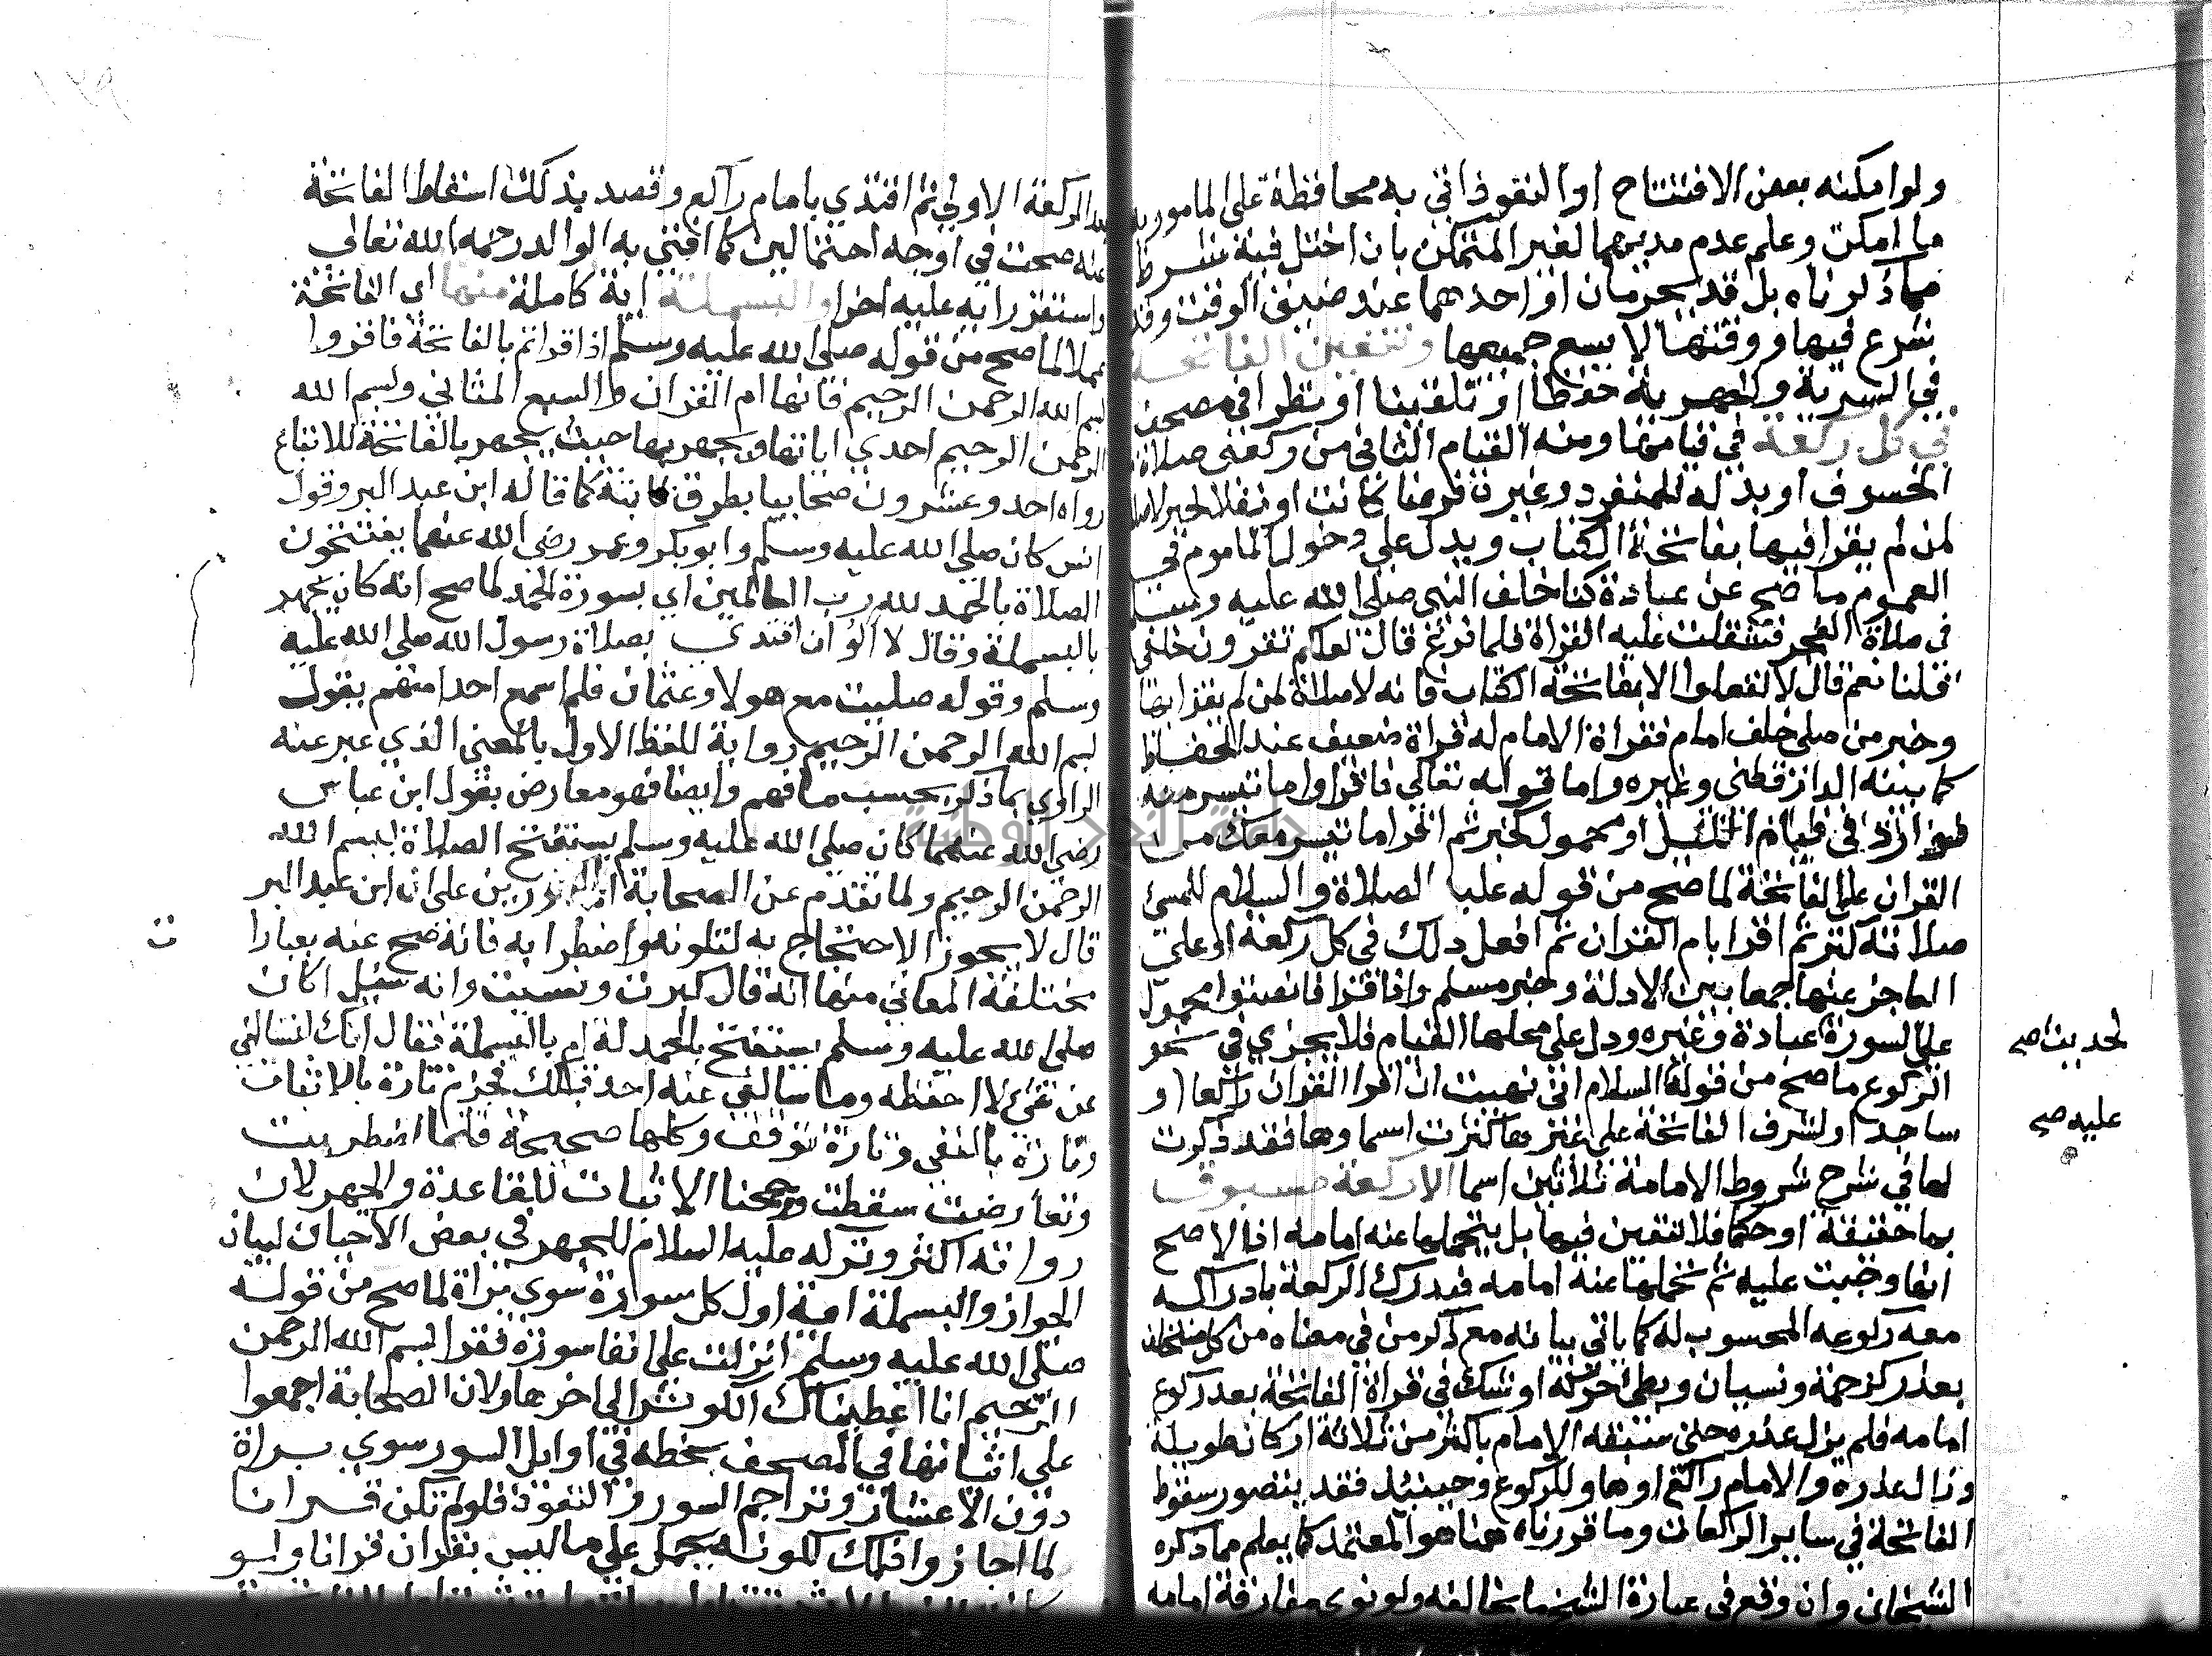 ولو امكنه بعض الافتتاح او التعوذ اتي به محافظة على المامور به
ما امكن وعلم عدم مدبهما لغير المتمكن بان اختل فيه شرط
مما ذكرناه بل قد يحرمان او احدهما عند ضيق الوقت وقد
شرع فيها ووقتها لا يسع جميعها وتتعين الفاتحة
في السرية والجهرية حفظا او تلقينا او نظرا في مصحف
في كل ركعة في قيامها ومنه القيام الثاني من ركعتي صلاة
الخسوف او بدله للمنفرد وغيره فرضا كانت او نفلا لخبر لا صلاة
لمن لم يقرا فيها بفاتحة الكتاب ويدل على دخول الماموم في
العموم ما صح عن عبادة كنا خلف النبي صلى الله عليه وسلم
في صلاة الفجر فثقلت عليه القراة فلما فرغ قال لعلكم تقرون خلفي
قلنا نعم قال لا تفعلوا الا بفاتحة الكتاب فانه لا صلاة لمن لم يقرا بها
وخبر من صلى خلف امام فقراة الامام له قراة ضعيف عند الحفاظ
كما بينه الدارقطني وغيره واما قوله تعالي فاقراوا ما تيسر منه
فوارد في قيام الليل او محمول كخبر ثم اقرا ما تيسر معك من
القران على الفاتحة لما صح من قوله عليه الصلاة والسلام للمسئ
صلاته كبر ثم اقرا بام القران ثم افعل ذلك في كل ركعة او على
العاجز عنها جمعا بين الادلة وخبر مسلم واذا قرا فانصتوا محمول
على السورة عبادة وغيره ودل على محلها القيام فلا يجزي في نحو
الركوع ما صح من قوله السلام اني نهيت ان اقرا القران راكعا او
ساجدا ولشرف الفاتحة على غيرها كثرت اسماوها فقد ذكرت
لها في شرح شروط الامامة ثلاثين اسما الا ركعة مسبوق
بها حقيقة او حكما فلا تتعين فيها بل يتحملها عنه امامه اذ الاصح
انها وجبت عليه ثم تحملها عنه امامه فيدرك الركعة بادراكه
معه ركوعه المحسوب له كما ياتي بيانه مع ذكر من في معناه من كل متخلف
بعذر كزحمة ونسيان وبطئ حركة او شك في قراة الفاتحة بعد ركوع
امامه فلم يزل عذره حتى سبقه الامام باكثر من ثلاثة اركان طويلة
وزال عذره والامام راكع او هاو للركوع وحينيذ فقد يتصور سقوط
الفاتحة في ساير الركعات وما قررناه هنا هو المعتمد كما يعلم مما ذكره
الشيخان وان وقع في عبارة الشيخ ما يخالفه ولو نوى مفارقة امامه
لحديث صح
عليه صح
بعد الركعة الاولي ثم اقتدي بامام راكع وقصد بذلك اسقاط الفاتحة
عنه صحت في اوجه احتمالين كما افتي به الوالد رحمه الله تعالى
واستقر رايه عليه اخرا والبسملة اية كاملة منها اي الفاتحة
عملا لما صح من قوله صلى الله عليه وسلم اذا قراتم بالفاتحة فاقروا
بسم الله الرحمن الرحيم فانها ام القران والسبع المثاني وبسم الله
الرحمن الرحيم احدي اياتها ويجهر بها حيث يجهر بالفاتحة للاتباع
رواه احد وعشرون صحابيا بطرق ثابتة كما قاله ابن عبد البر وقول
انس كان صلى الله عليه وسلم وابو بكر وعمر رضي الله عنهما يفتتحون
الصلاة بالحمد لله رب العالمين اي بسورة الحمد لما صح انه كان يجهر
بالبسملة وقال لا الوا ان اقتدي بصلاة رسول الله صلى الله عليه
وسلم وقوله صليت مع هولا وعثمان فلم اسمع احدا منهم يقول
بسم الله الرحمن الرحيم رواية للفظ الاول بالمعنى الذي عبر عنه
الراوي بما ذكر بحسب ما فهم وايضا فهو معارض بقول ابن عباس
رضي الله عنهما كان صلى الله عليه وسلم يستفتح الصلاة ببسم الله
الرحمن الرحيم ولما تقدم عن الصحابة على ان ابن عبد البر
قال لا يجوز الاحتجاج به لتلونه واضطرابه فانه صح عنه بعبارا
ت
مختلفة المعاني منها انه قال كبرت ونسيت وانه سيل اكان
صلى الله عليه وسلم يستفتح بالحمد لة ام بالبسملة فقال انك لتسالني
عن شئ لا احفظه وما سالني عنه احد قبلك فجزم تارة بالاثبات
وتارة بالنفي وتارة توقف وكلها صحيحة فلما اضطربت
وتعارضت سقطت ورجحنا الاثبات للقاعدة والجهر لان
رواته اكثر وتركه عليه السلام للجهر في بعض الاحيان لبيان
الجواز والبسملة اية اول كل سورة سوي براة لما صح من قوله
صلى الله عليه وسلم انزلت علي انفا سورة فقرا بسم الله الرحمن
الرحيم انا اعطيناك الكوثر الى اخرها ولان الصحابة اجمعوا
على اثباتها في المصحف بخطه في اوايل السور سوي براة
دون الاعشار وتراجم السور والتعوذ فلو لم تكن قرانا
لما اجازوا ذلك لكونه يحمل على ما ليس بقران قرانا ولو